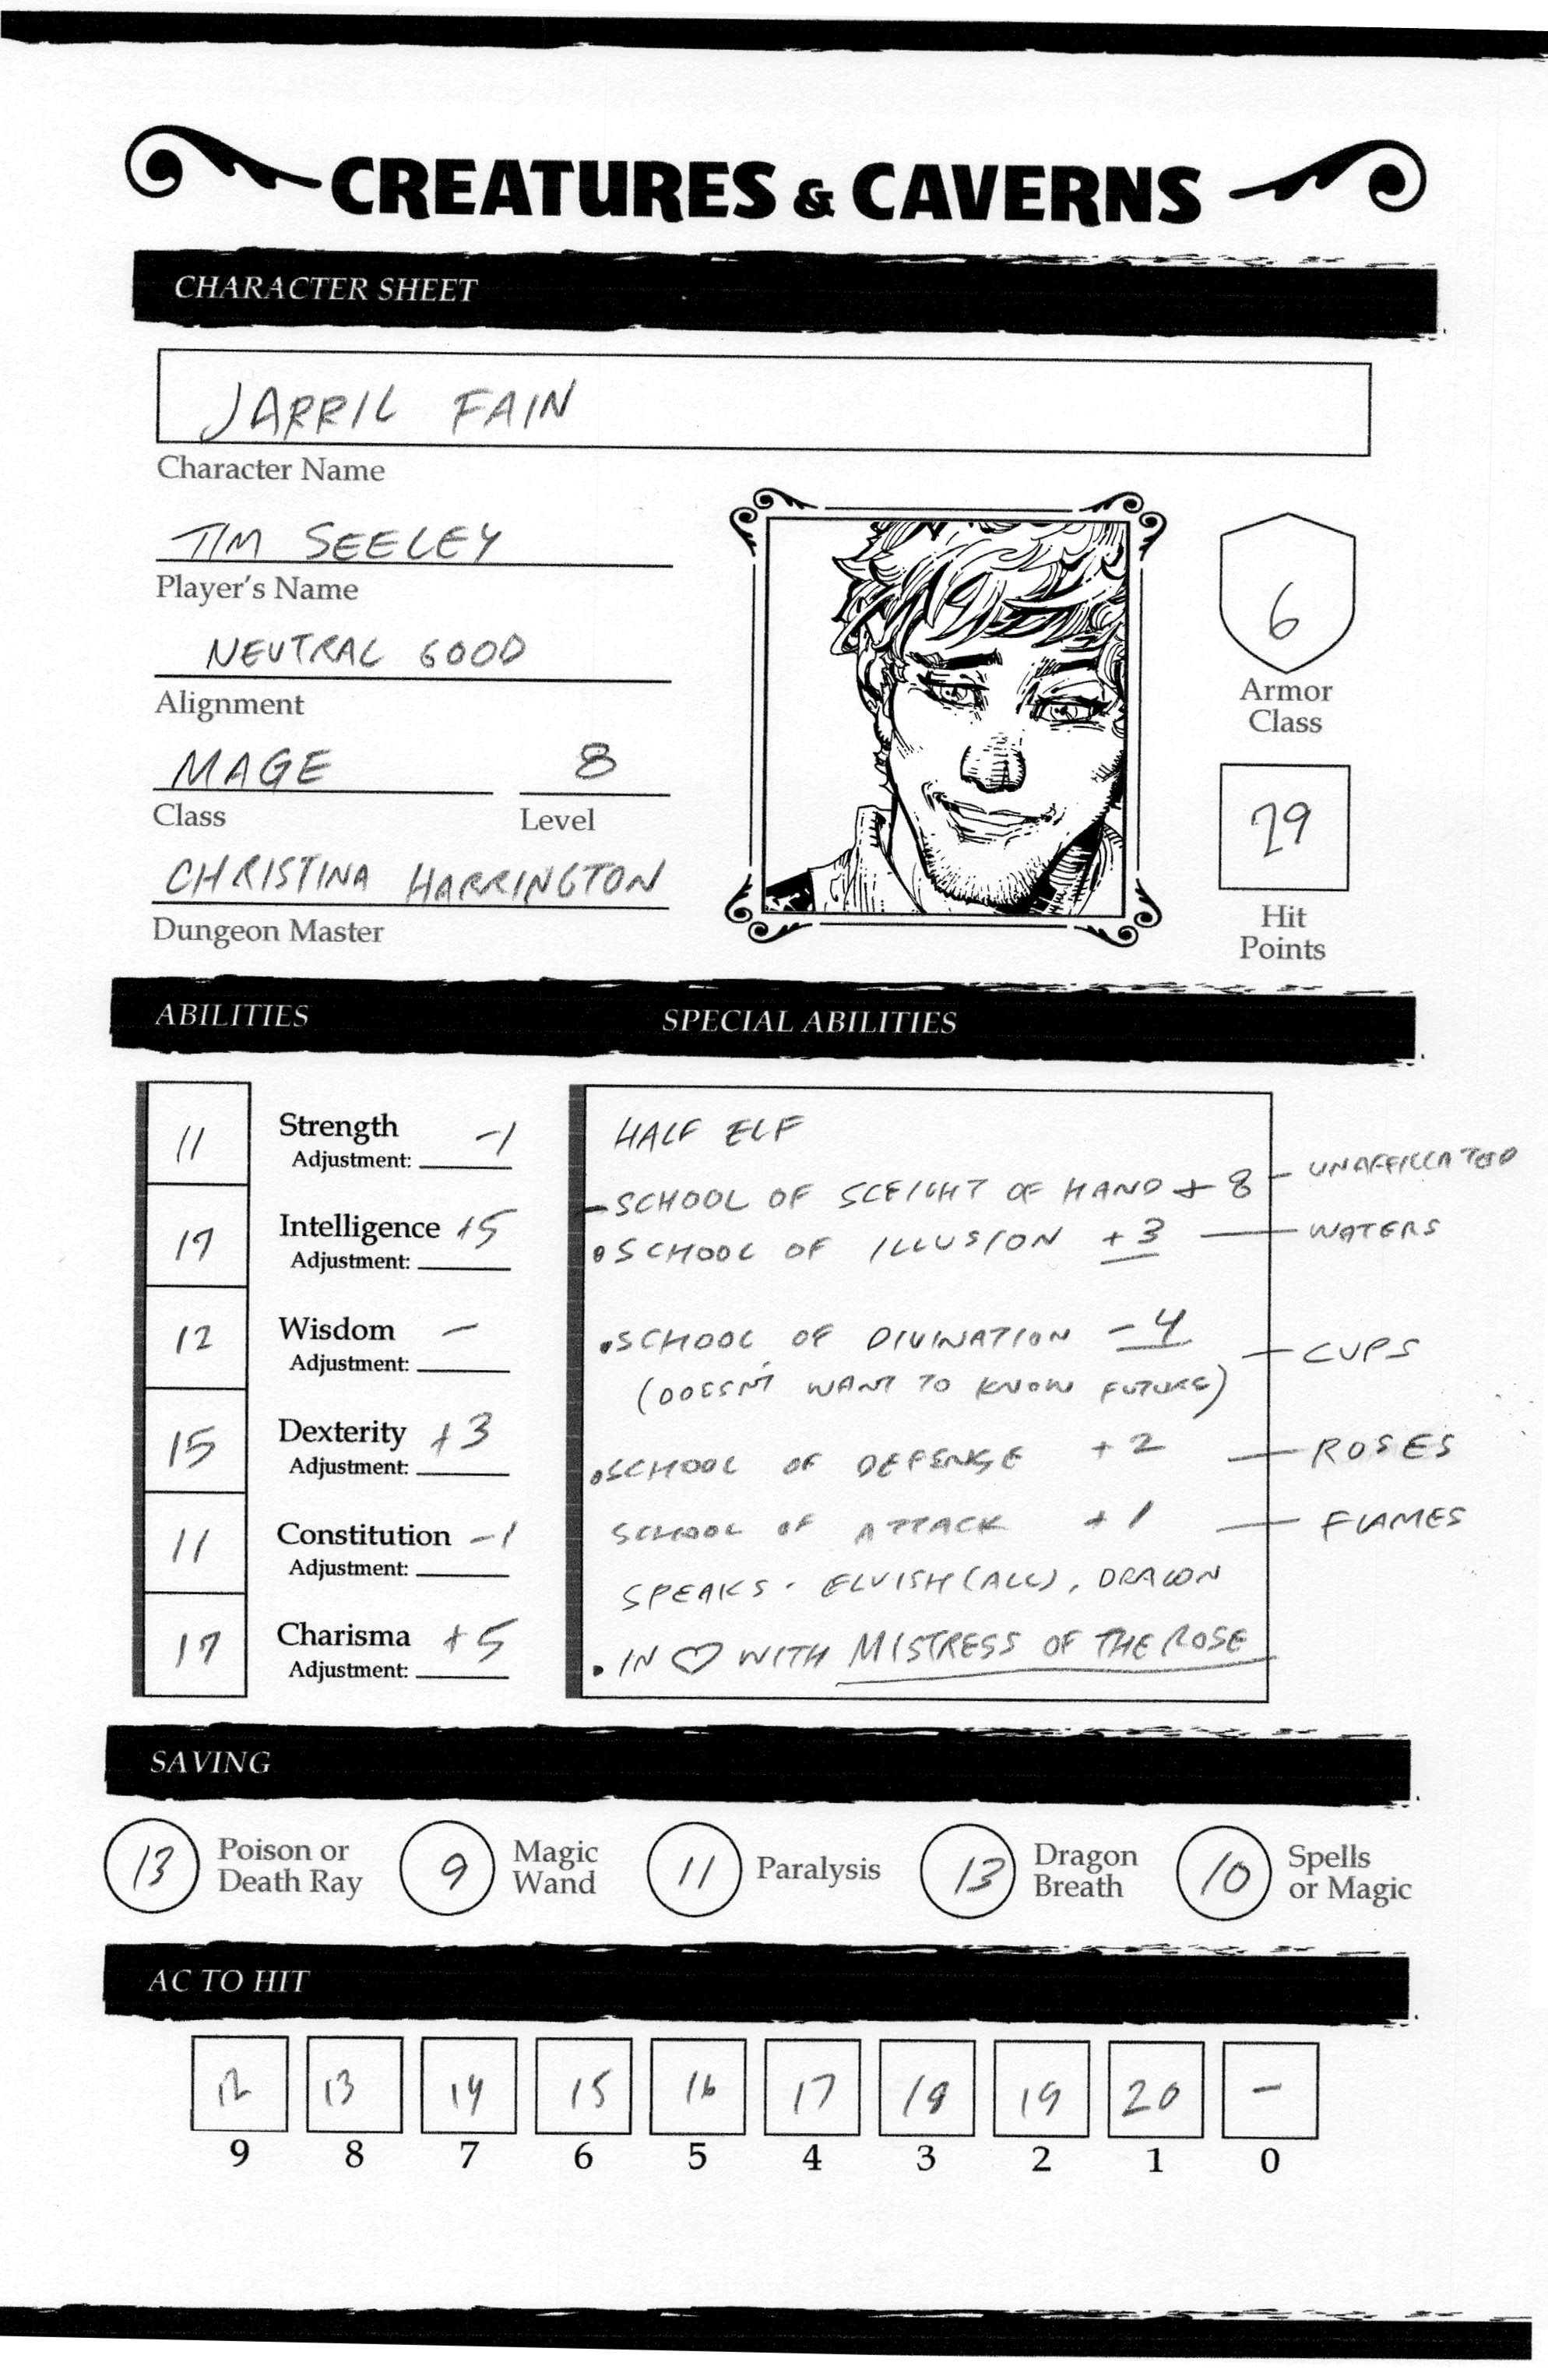 CREATURES & CAVERNS
CHARACTER SHEET
JARRIL FAIN
Character Name
TIM SEELEY
Player's Name
NEUTRAL GOOD
Alignment
MAGE 8
Class Level
CHRISTINA HARRINGTON
Dungeon Master
6
Armor
Class
29
Hit
Points
ABILITIES SPECIAL ABILITIES
11 Strength -1
Adjustment:
17 Intelligence +5
Adjustment:
12 Wisdom -
Adjustment:
15 Dexterity +3
Adjustment:
11 Constitution -1
Adjustment:
17 Charisma +5
Adjustment:
HALF ELF
- SCHOOL OF SLEIGHT OF HAND + 8 - UNAFFILIATED
• SCHOOL OF ILLUSION +3 — WATERS
• SCHOOL OF DIVINATION -4 — CUPS
(DOESN'T WANT TO KNOW FUTURE)
• SCHOOL OF DEFENSE +2 — ROSES
SCHOOL OF ATTACK +1 — FLAMES
SPEAKS · ELVISH (ALL), DRAGON
• IN ♡ WITH MISTRESS OF THE ROSE
SAVING
13 Poison or
Death Ray
9 Magic
Wand
11 Paralysis
13 Dragon
Breath
10 Spells
or Magic
AC TO HIT
12 13 14 15 16 17 18 19 20 -
9 8 7 6 5 4 3 2 1 0